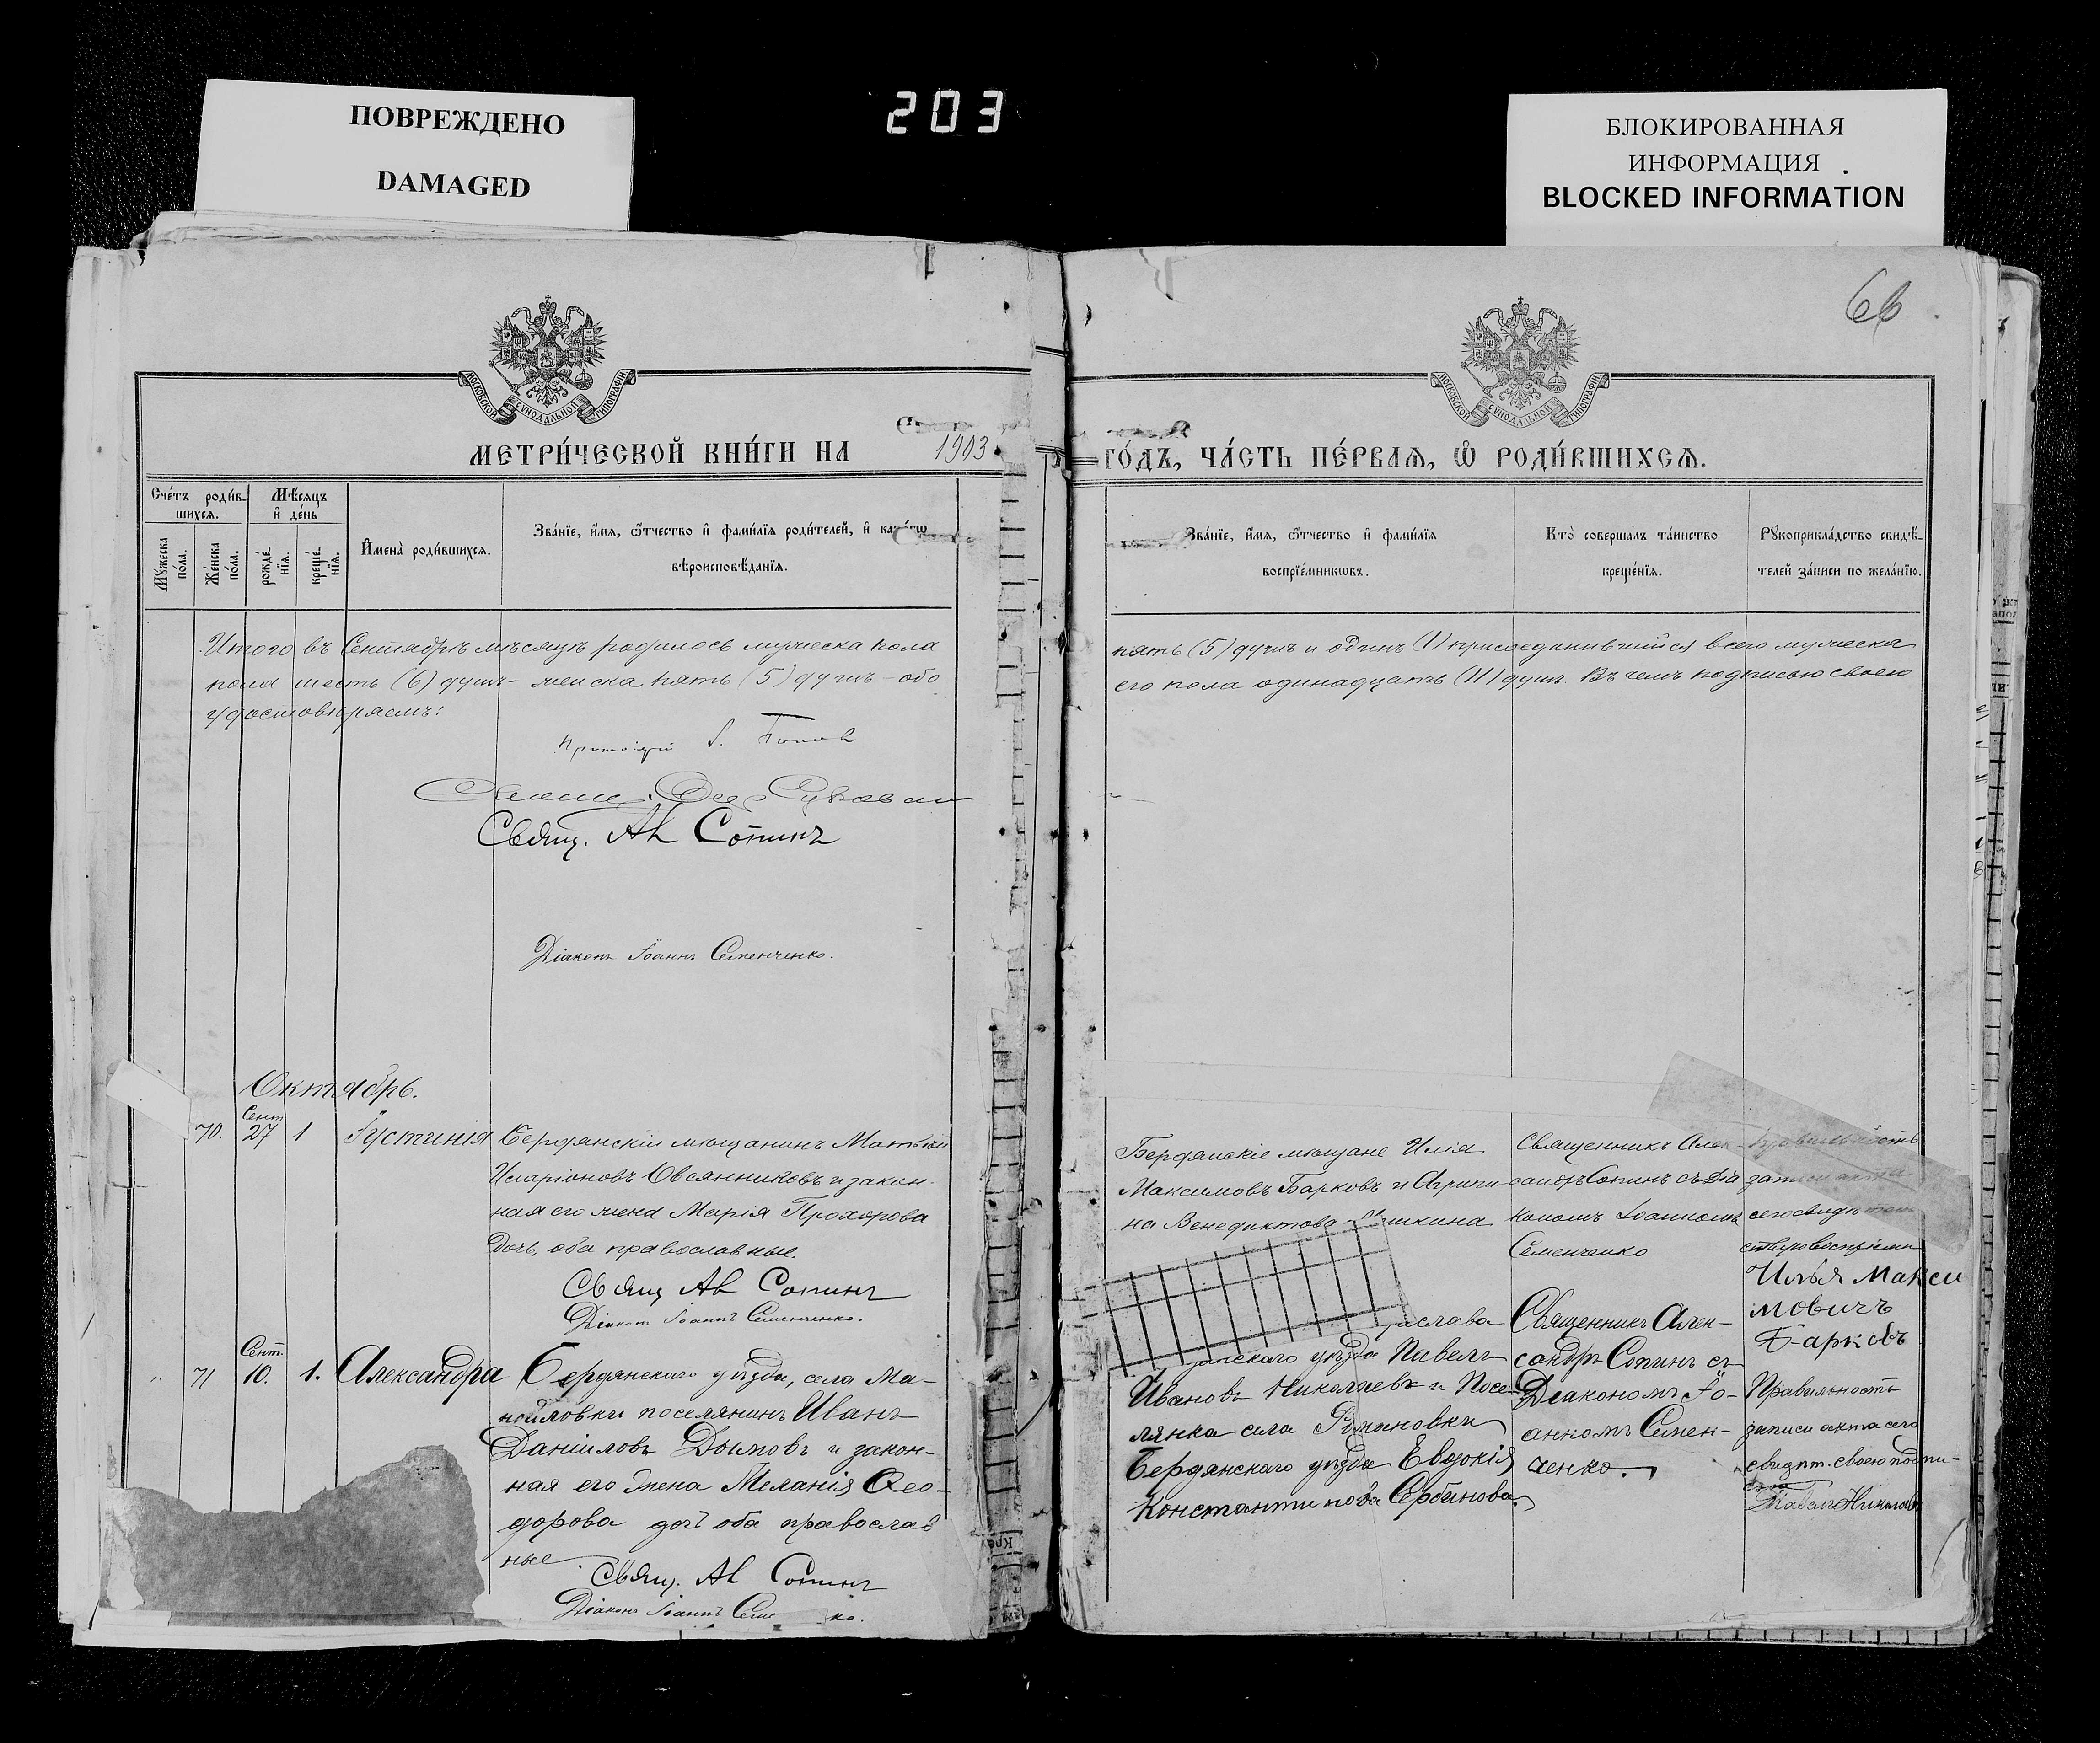 ПОВРЕЖДЕНО
DAMAGED
203
БЛОКИРОВАННАЯ
ИНФОРМАЦИЯ
BLOCKED INFORMATION
66
МОСКОВСКОЙ СѴНОДАЛЬНОЙ ТИПОГРАФІИ
МОСКОВСКОЙ СѴНОДАЛЬНОЙ ТИПОГРАФІИ
МЕТРИ́ЧЕСКОЙ КНИ́ГИ НА 1903
ГО́ДЪ, ЧА́СТЬ ПЕ́РВАЯ, Ѡ РОДИ́ВШИХСЯ.
Сче́тъ роди́в-
шихся.
Мѣ́сяцъ
и҆ де́нь
Мꙋ́жеска
по́ла.
Же́нска
по́ла.
рожде́-
нїя.
креще́-
нїя.
И҆мена̀ роди́вшихся.
Зва́нїе, и҆́мя, ѻ҆́тчество и҆ фами́лїя роди́телей, и҆
вѣроисповѣ́данїя.
Зва́нїе, и҆́мя, ѻ҆́тчество и҆ фами́лїя
воспрїе́мникѡвъ.
Кто̀ соверша́лъ та́инство
креще́нїя.
Рꙋкоприкла́дство свидѣ́-
телей за́писи по жела́нїю.
Итого въ Сентябрѣ мѣсяцѣ родилось мужеска пола
пола шесть (6) душъ - женска пять (5) душъ - обо
удостовѣряемъ:
пять (5) душъ и одинъ (1) присоединившійся всего мужеска
его пола одинадцать (11) душъ. Въ чемъ подписью своею
Протоіерей І. Поповъ
Свящ. Ал Сопинъ
Діаконъ Іоаннъ Семенченко.
Октябрь.
Сент
70. 27 1 Іустинія Бердянскій мѣщанинъ Матѳій
Иларіоновъ Овсянниковъ и закон-
ная его жена Марія Прохорова
дочь, оба православные.
Свящ Ал Сопинъ
Діаконъ Іоаннъ Семенченко.
Бердянскіе мѣщане Илія
Максимовъ Барковъ и Агрипи
на Венедиктова шкина
Священникъ Алек-
сандръ Сопинъ съ Діа
кономъ Іоанномъ
Семенченко
Правильность
записи акта
сего свидѣтель
ствую воспріемн
Илья Макси
мовичъ
Барковъ
Сент.
71 10. 1. Александра Бердянскаго уѣзда, села Ма-
нойловки поселянинъ Иванъ
Даніиловъ Дымовъ и закон-
ная его жена Меланія Ѳео-
дорова дочь оба православ
ные.
Свящ. Ал Сопинъ
Діаконъ Іоаннъ Семе ко.
рослава
янскаго уѣзда Павелъ
Ивановъ Николаевъ и Посе-
лянка села Романовки
Бердянскаго уѣзда Евдокія
Константинова Сербинова.
Священникъ Алек-
сандръ Сопинъ съ
Діакономъ Іо-
анномъ Семен-
ченко.
Правильность
записи акта сего
свидѣт. своею подпи-
сью
Павелъ Николаевъ